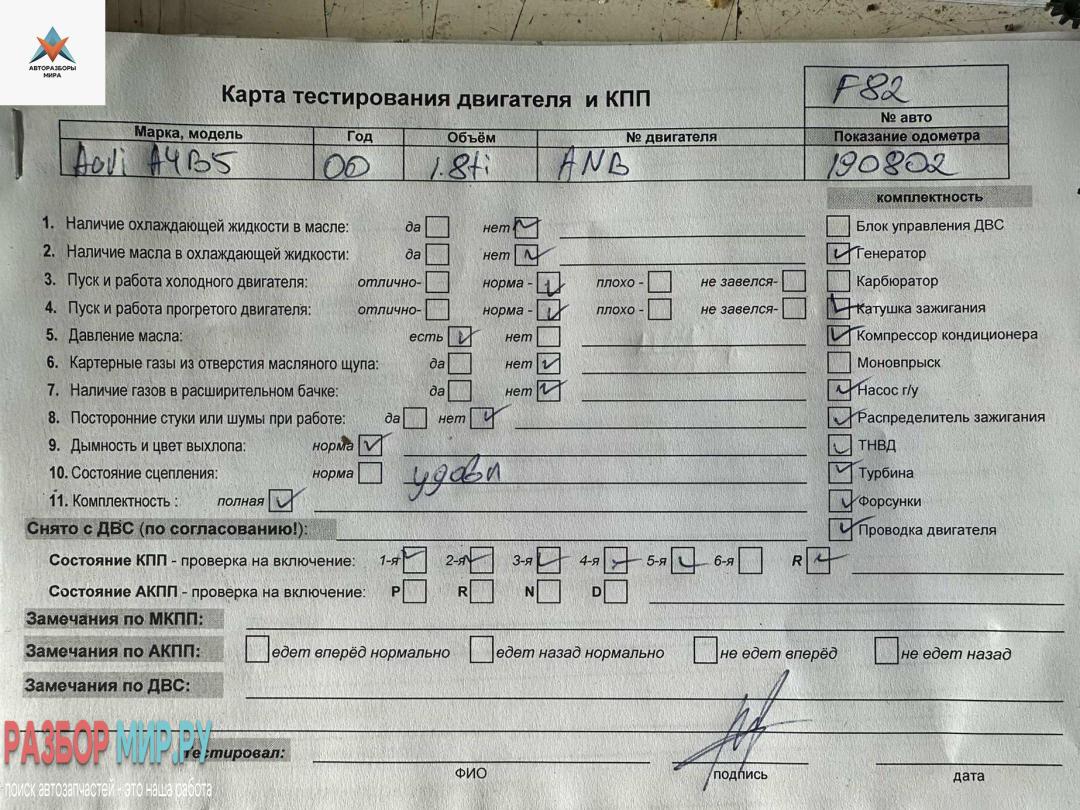 АВТОРАЗБОРЫ
МИРА
Карта тестирования двигателя и КПП
F82
№ авто
Марка, модель Год Объём № двигателя Показание одометра
Audi A4B5 00 1.8ti ANB 190802
комплектность
1. Наличие охлаждающей жидкости в масле: да нет
Блок управления ДВС
2. Наличие масла в охлаждающей жидкости: да нет
Генератор
3. Пуск и работа холодного двигателя: отлично- норма - плохо - не завелся-
Карбюратор
4. Пуск и работа прогретого двигателя: отлично- норма - плохо - не завелся-
Катушка зажигания
5. Давление масла: есть нет
Компрессор кондиционера
6. Картерные газы из отверстия масляного щупа: да нет
Моновпрыск
7. Наличие газов в расширительном бачке: да нет
Насос г/у
8. Посторонние стуки или шумы при работе: да нет
Распределитель зажигания
9. Дымность и цвет выхлопа: норма
ТНВД
10. Состояние сцепления: норма удовл
Турбина
11. Комплектность : полная
Форсунки
Снято с ДВС (по согласованию!):
Проводка двигателя
Состояние КПП - проверка на включение: 1-я 2-я 3-я 4-я 5-я 6-я R
Состояние АКПП - проверка на включение: P R N D
Замечания по МКПП:
Замечания по АКПП: едет вперёд нормально едет назад нормально не едет вперёд не едет назад
Замечания по ДВС:
РАЗБОР МИР.РУ
Тестировал:
поиск автозапчастей - это наша работа
ФИО подпись дата